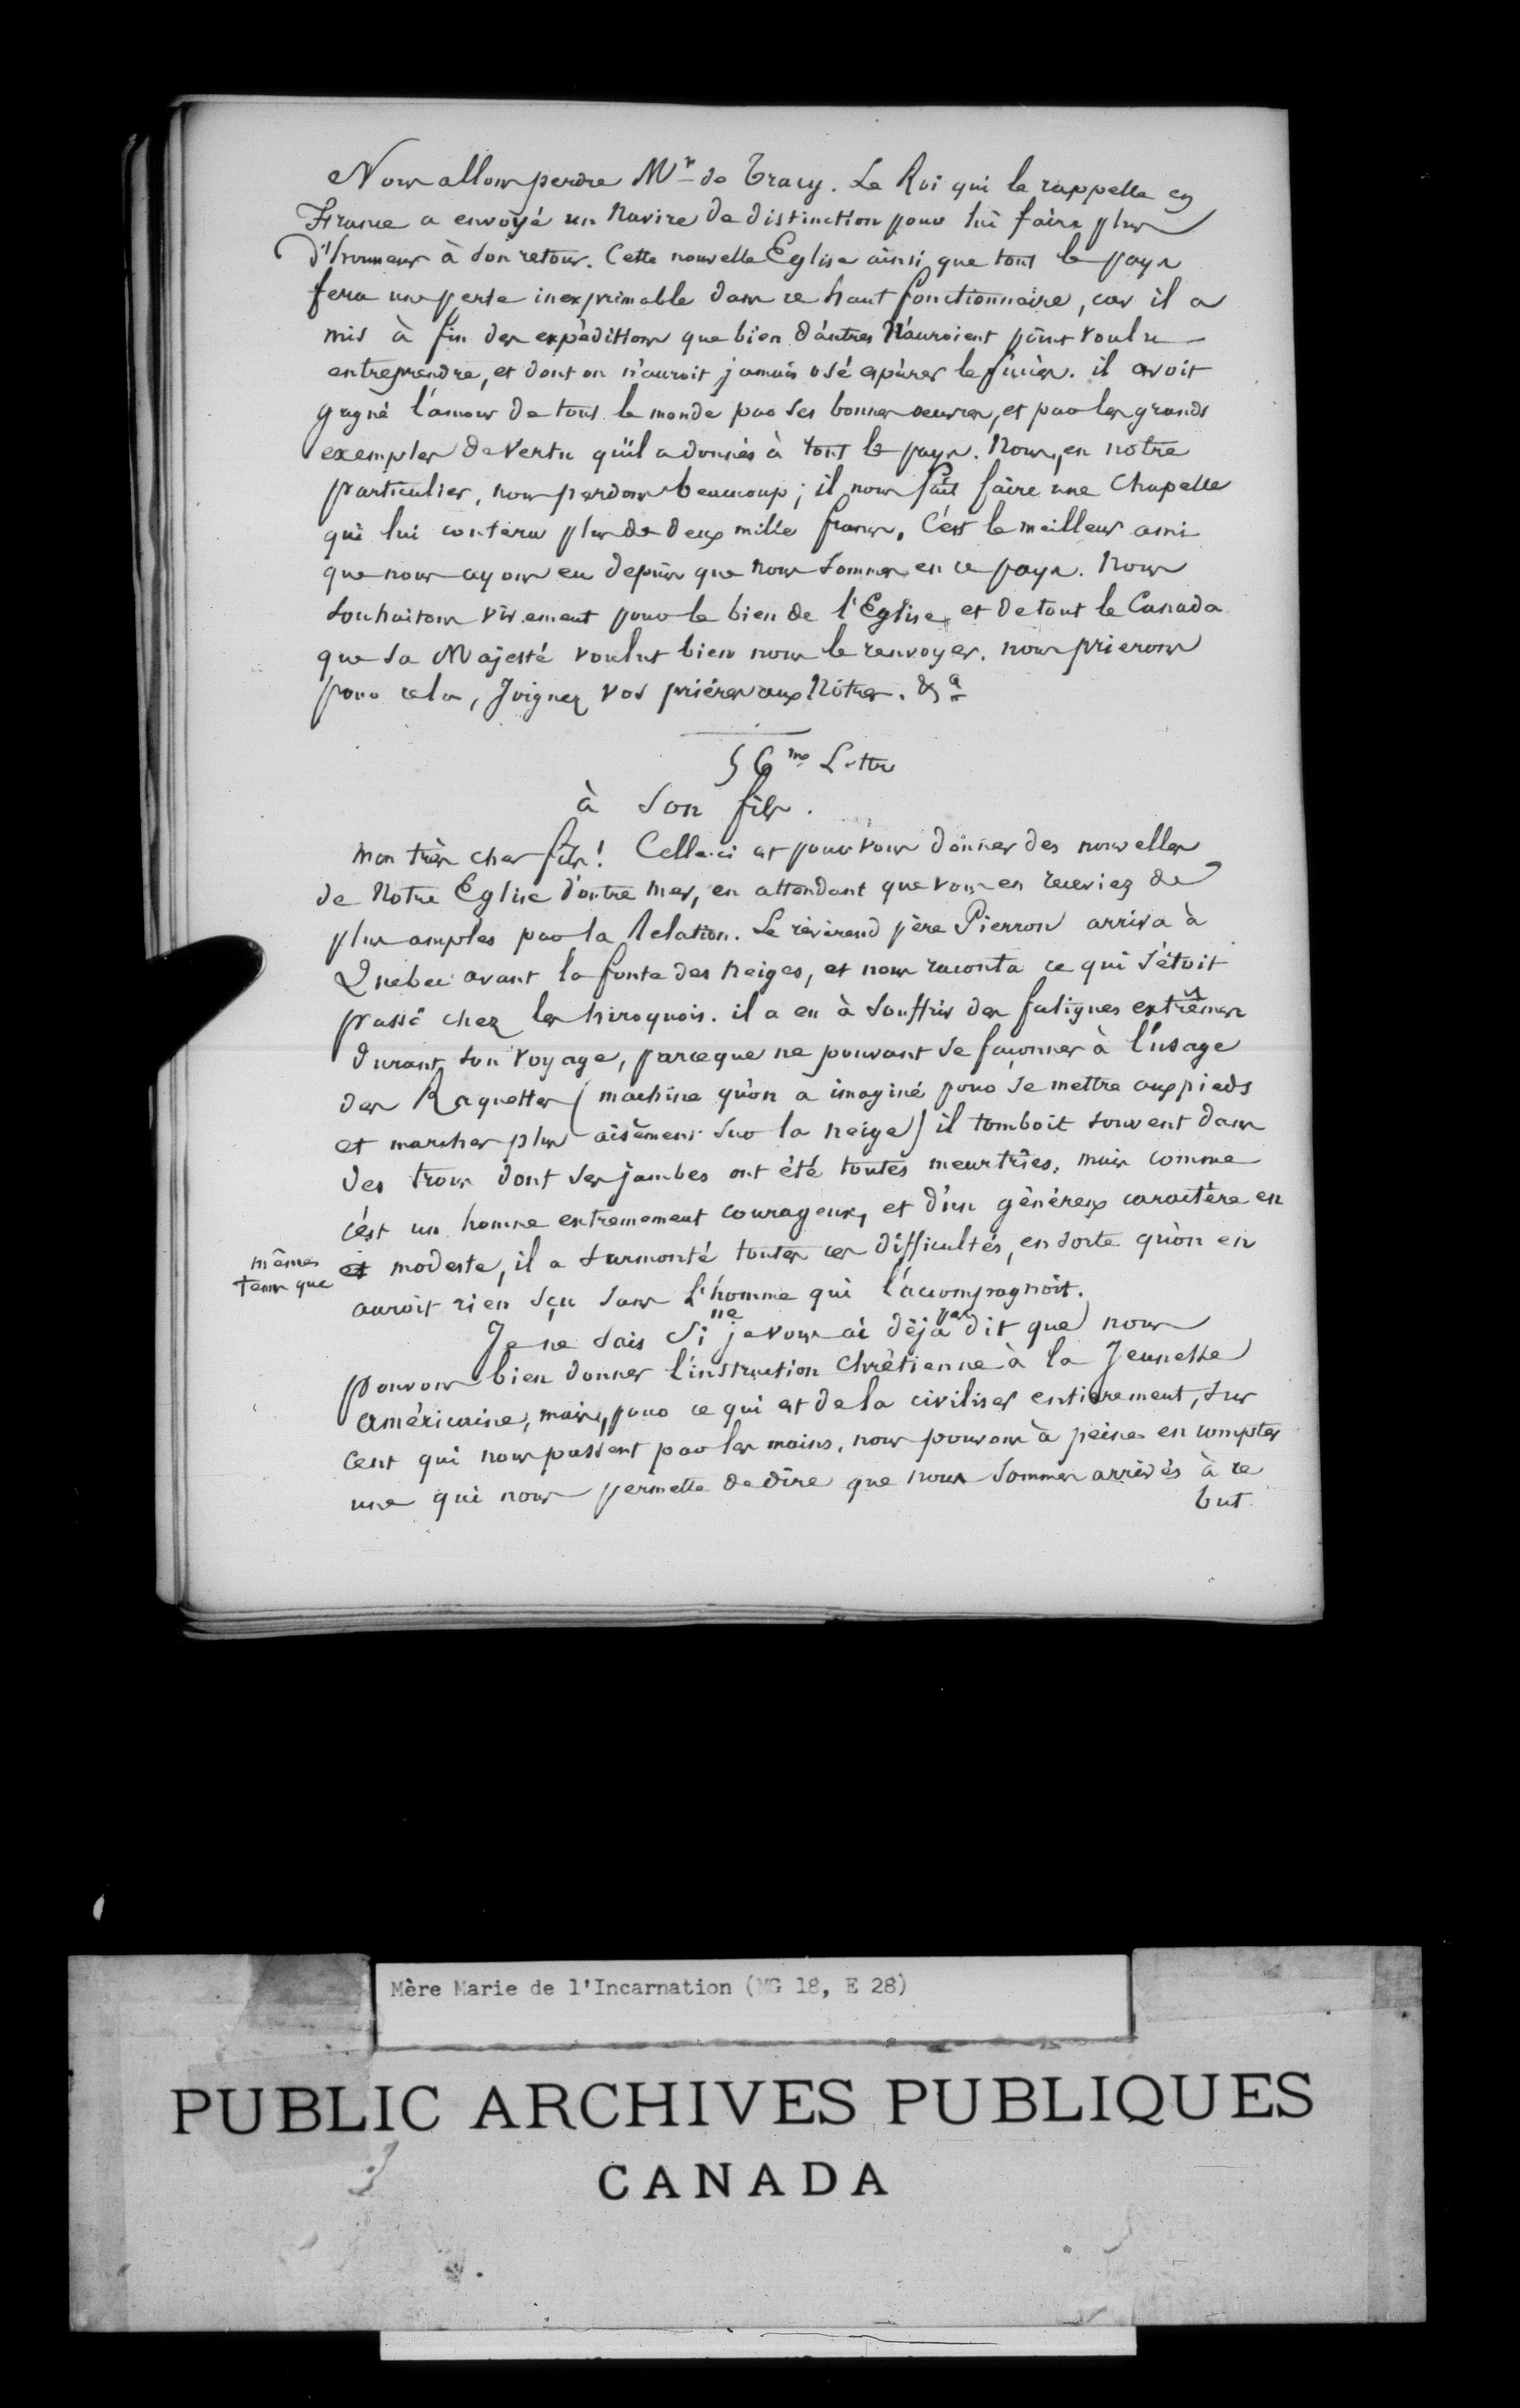 Nous allons perdre Mr de Tracy. Le Roi qui le rappelle en
France a envoyé un Navire de distinction pour lui faire plus
d'honneur à son retour. Cette nouvelle Eglise ainsi que tout le pays
fera une perte inexprimable dans ce haut fonctionnaire, car il a
mis à fin des expéditions que bien d'autres N'auroient point voulu
entreprendre, et dont on n'auroit jamais osé espérer le succès. il avoit
gagné l'amour de tout le monde par ses bonnes oeuvres, et par les grands
exemples de vertu qu'il a donnés à tout le pays. Nous, en notre
particulier, nous perdons beaucoup; il nous fait faire une Chapelle
qui lui contera plus de deux mille francs. C'est le meilleur ami
que nous ayons eu depuis que nous sommes en ce pays. Nous
souhaitons vivement pour le bien de l'Eglise et de tout le Canada
que Sa Majesté voulut bien nous le renvoyer. nous prierons
pour cela, Joignez vos prières aux Nôtres. &a
56me Lettre
à Son fils.
Mon très cher fils! Celle-ci est pour vous donner des nouvelles
de Notre Eglise d'outre mer, en attendant que vous en receviez de
plus amples par la Relation. Le révérend père Pierron arriva à
Quebec avant la fonte des Neiges, et nous raconta ce qui s'étoit
passé chez les hiroquois. il a eu à souffrir des fatigues extrêmes
durant son voyage, parceque ne pouvant se façonner à l'usage
des Raquettes (machine qu'on a imaginé pour se mettre aux pieds
et marcher plus aisément sur la neige) il tomboit souvent dans
des trous dont ses jambes ont été toutes meurtries, mais comme
c'est un homme extremement courageux, et d'un généreux caractère en
mêmes
tems que
et modeste, il a surmonté toutes ces difficultés, en sorte qu'on en
auroit rien sçu sans l'homme qui l'accompagnoit.
Je ne sais Si je ne vous ai déjà pas dit que nous
pouvons bien donner l'instruction Chrêtienne à la Jeunesse
américaine, mais, pour ce qui est de la civiliser entierement, sur
cent qui nous passent par les mains, nous pouvons à peine en compter
une qui nous permette de dire que nous sommes arrivés à ce
but.
Mère Marie de l'Incarnation (MG 18, E 28)
PUBLIC ARCHIVES PUBLIQUES
CANADA